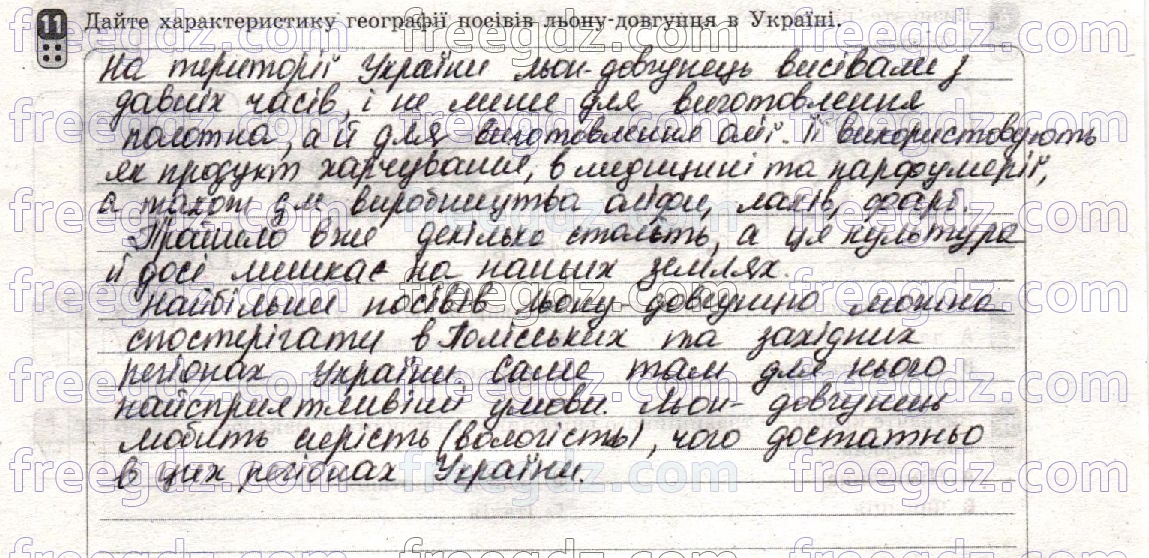 11 Дайте характеристику географії посівів льону-довгунця в Україні.
На території України льон-довгунець висівали з
давніх часів, і не лише для виготовлення
полотна, а й для виготовлення олії. Її використовують
як продукт харчування, в медицині та парфумерії,
а також для виробництва оліфи, лаків, фарб.
Пройшло вже декілька століть, а ця культура
й досі мешкає на наших землях.
Найбільше посівів льону-довгунцю можна
спостерігати в Поліських та західних
регіонах України. Саме там для нього
найсприятливіші умови. Льон-довгунець
любить сирість (вологість), чого достатньо
в цих регіонах України.
freegdz.com